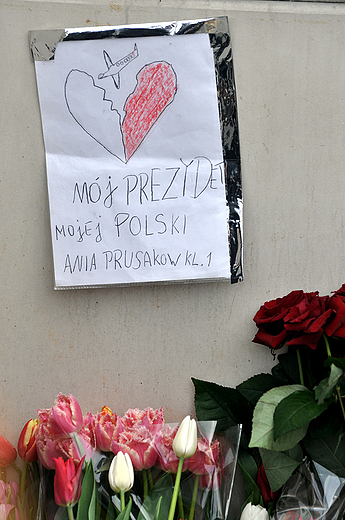 MÓJ PREZYDET
MOJEJ POLSKI
ANIA PRUSAKOW KL.1